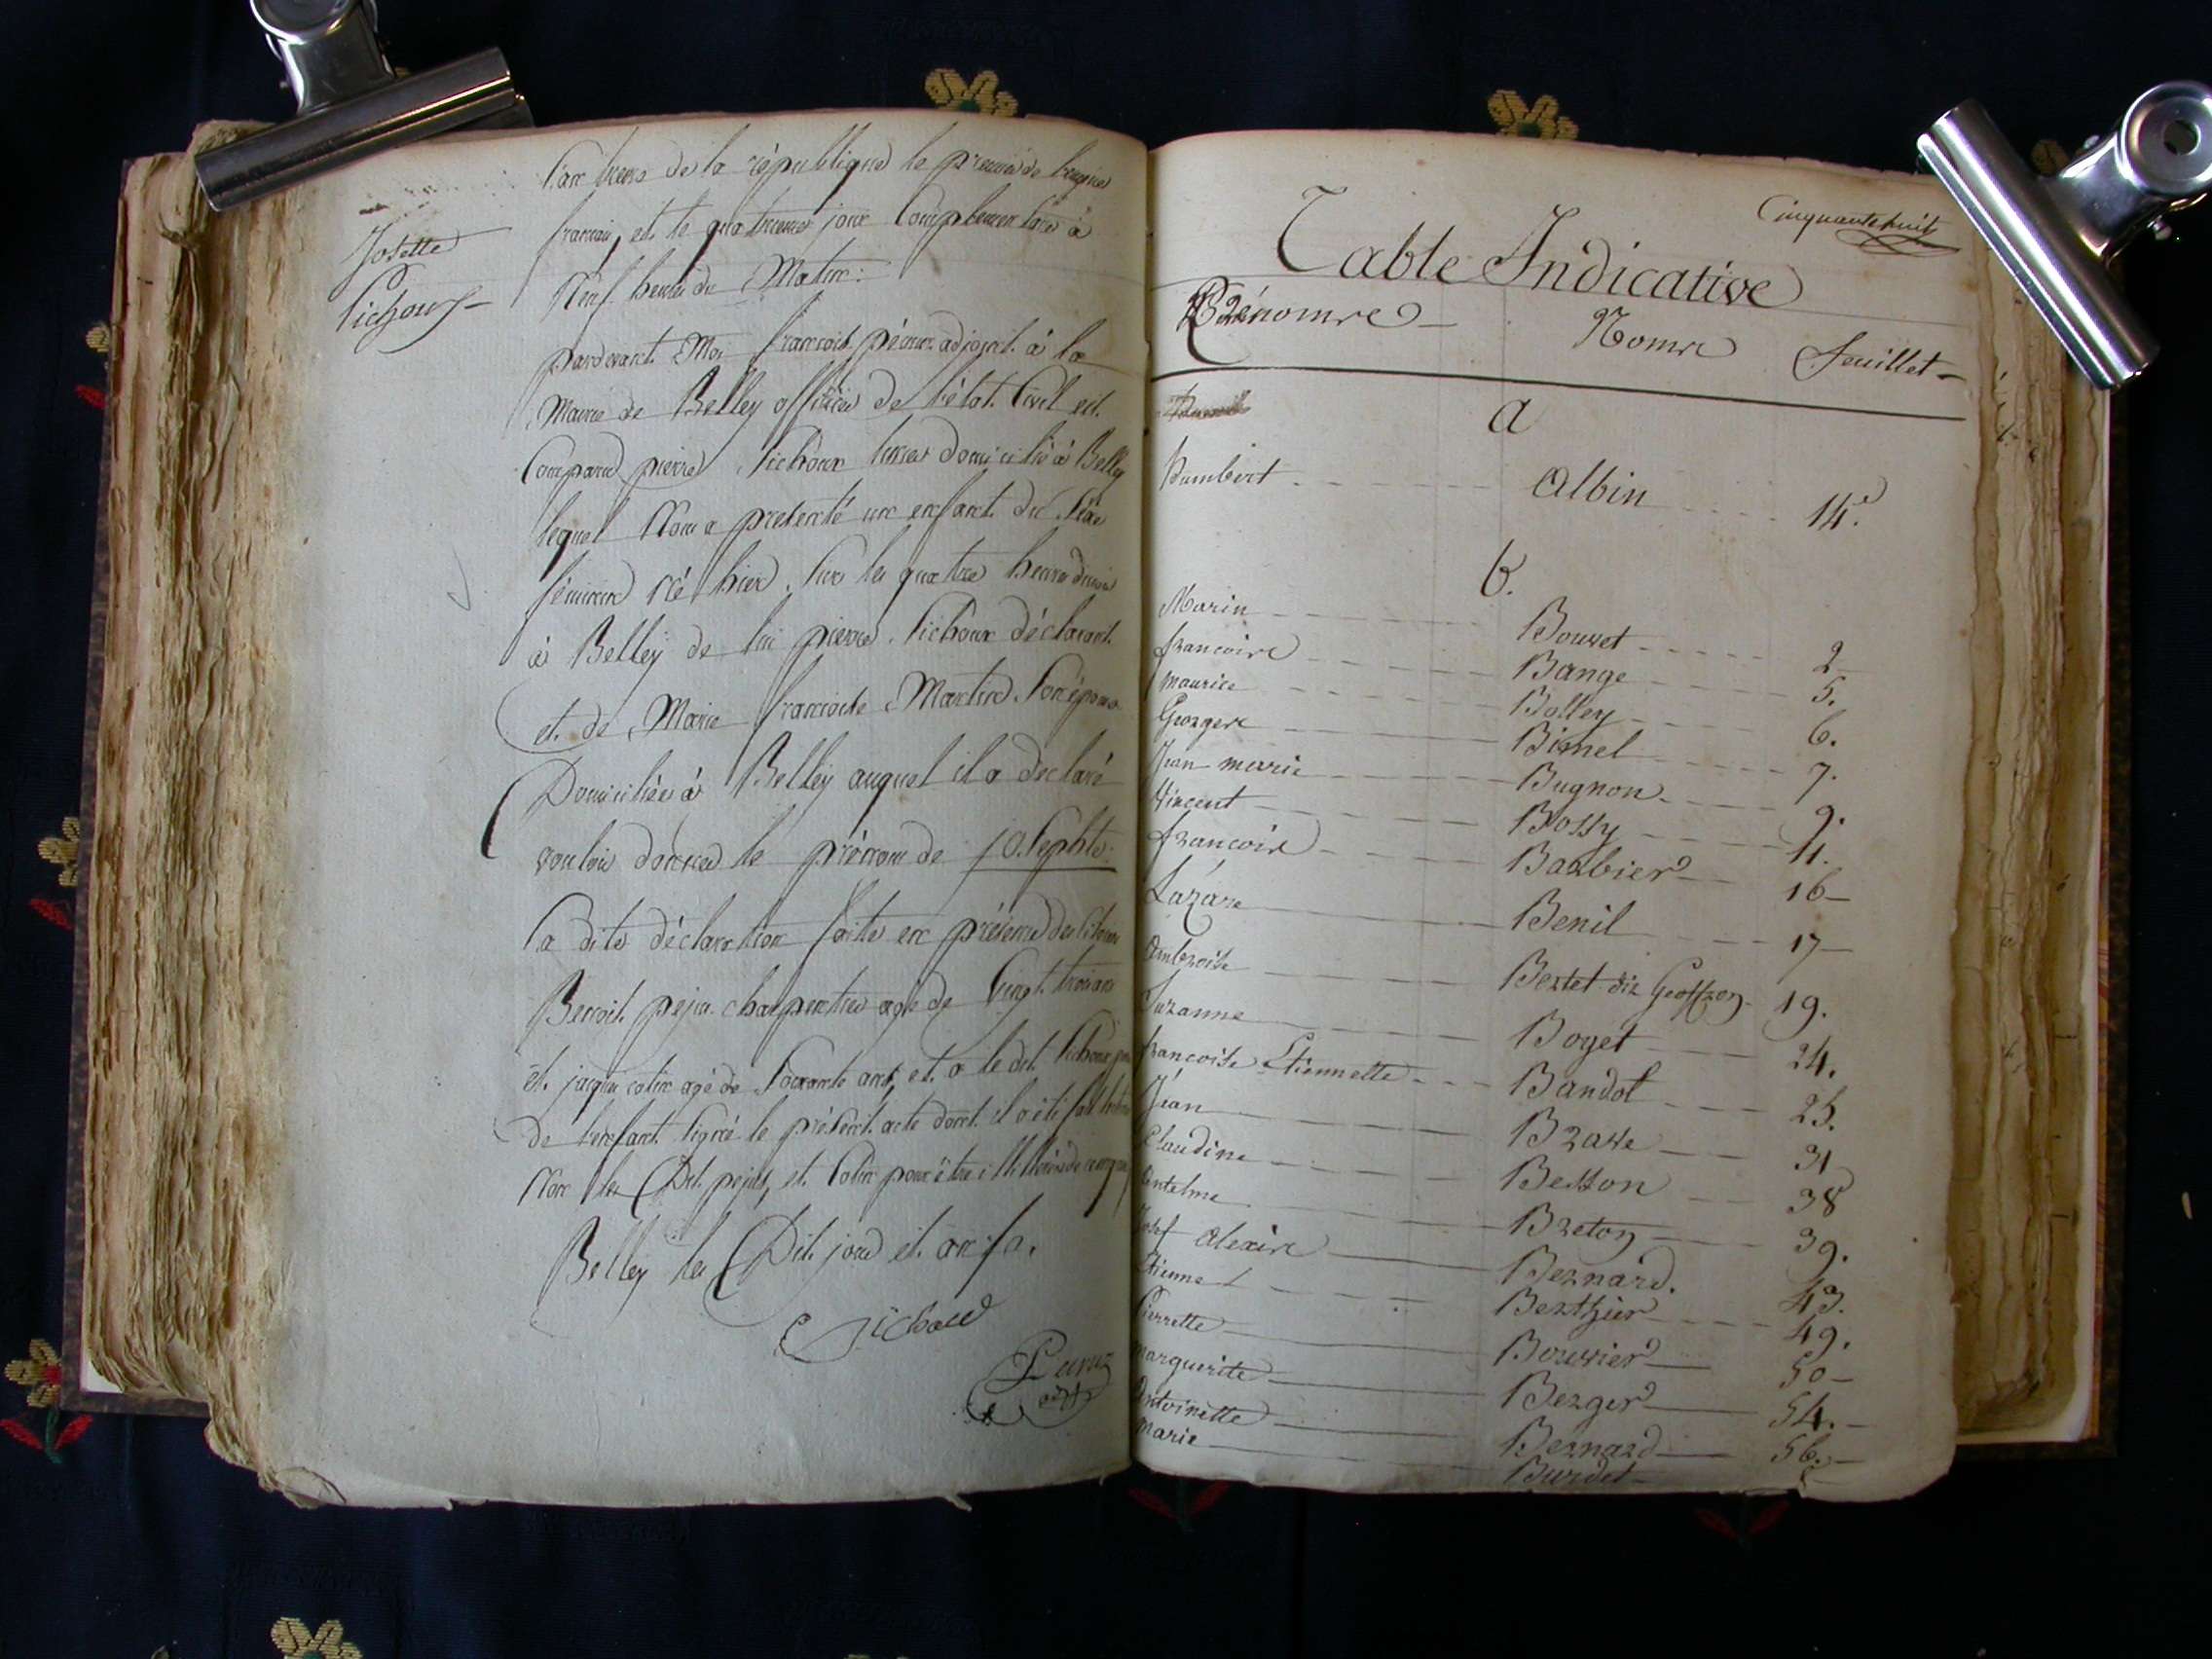 Josette
Pichoux
l'an treize de la république le premier de l'empire
francais, et le quatrieme jour Complementaire à
Neuf heures du Matin:
pardevant Moi francois adjoint à la
Mairie de Belley officier de l'état Civil est
Comparu pierre Pichoux domicilié à Belley
lequel Nous a presenté un enfant du sexe
féminin né hier sur les quatre heures du soir
à Belley de lui pierre Pichoux déclarant
et de Marie francoise Martin son épouse
Domiciliée à Belley auquel il a declaré
vouloir donner le prénom de josephte
la dite déclaration faite en présence des citoyens
Benoit pejus charpentier agé de vingt trois ans
et jaques colin agé de soixante ans, et a le dit Pichoux père
de l'enfant signé le présent acte dont il a été fait lecture
Non les Dit pejus, et Colin pour être illitérés de ce enquis
Belley les Dit jour et an f.a.
Pichoux
Cinquantehuit
Table Indicative
Prénoms Noms feuillet
a
humbert Albin 14.
b.
Marin Bouvet 2
francois Bange 5.
maurice Bolley 6.
Georges Bimel 7.
Jean marie Bugnon 9.
Vincent Bossy 11.
francois Barbier 16
Lazare Benil 17
Ambroise Bertet dit Geoffroy 19.
Suzanne Boget 24.
francoise Etiennette Bandot 25.
Jean Brave 31
Claudine Besson 38
Antelme Breton 39.
Josef Alexis Bernard. 43.
Etienne Berthier 49.
Pierrette Bouvier 50
marguerite Berger 54.
Antoinette Bernard 56.
Marie Burdet